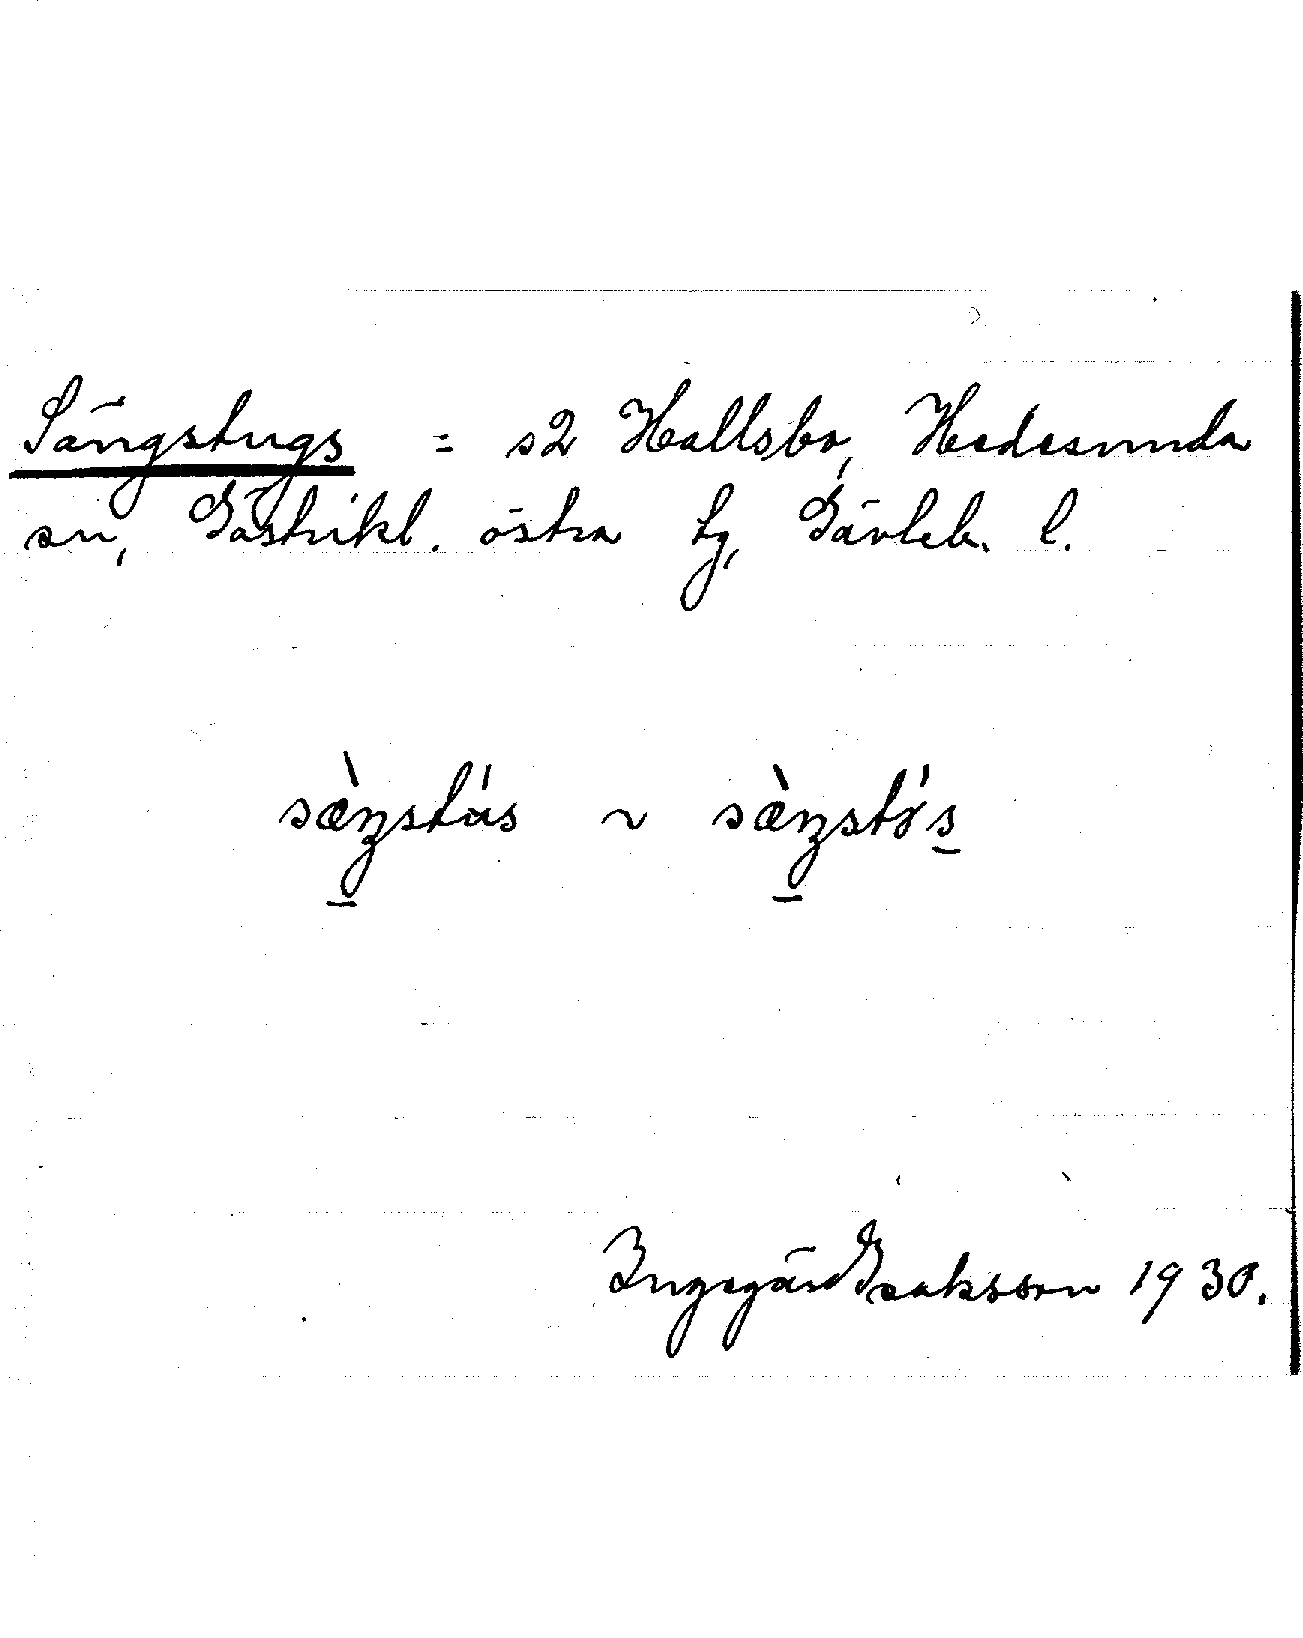 Sängstugs = s2 Hallsbo, Hedesunda
sn, Gästrikl. östra tg, Gävleb. l.
sæ̀ŋstús ~ sæ̀ŋstǿs
Ingegärd Isaksson 1930.